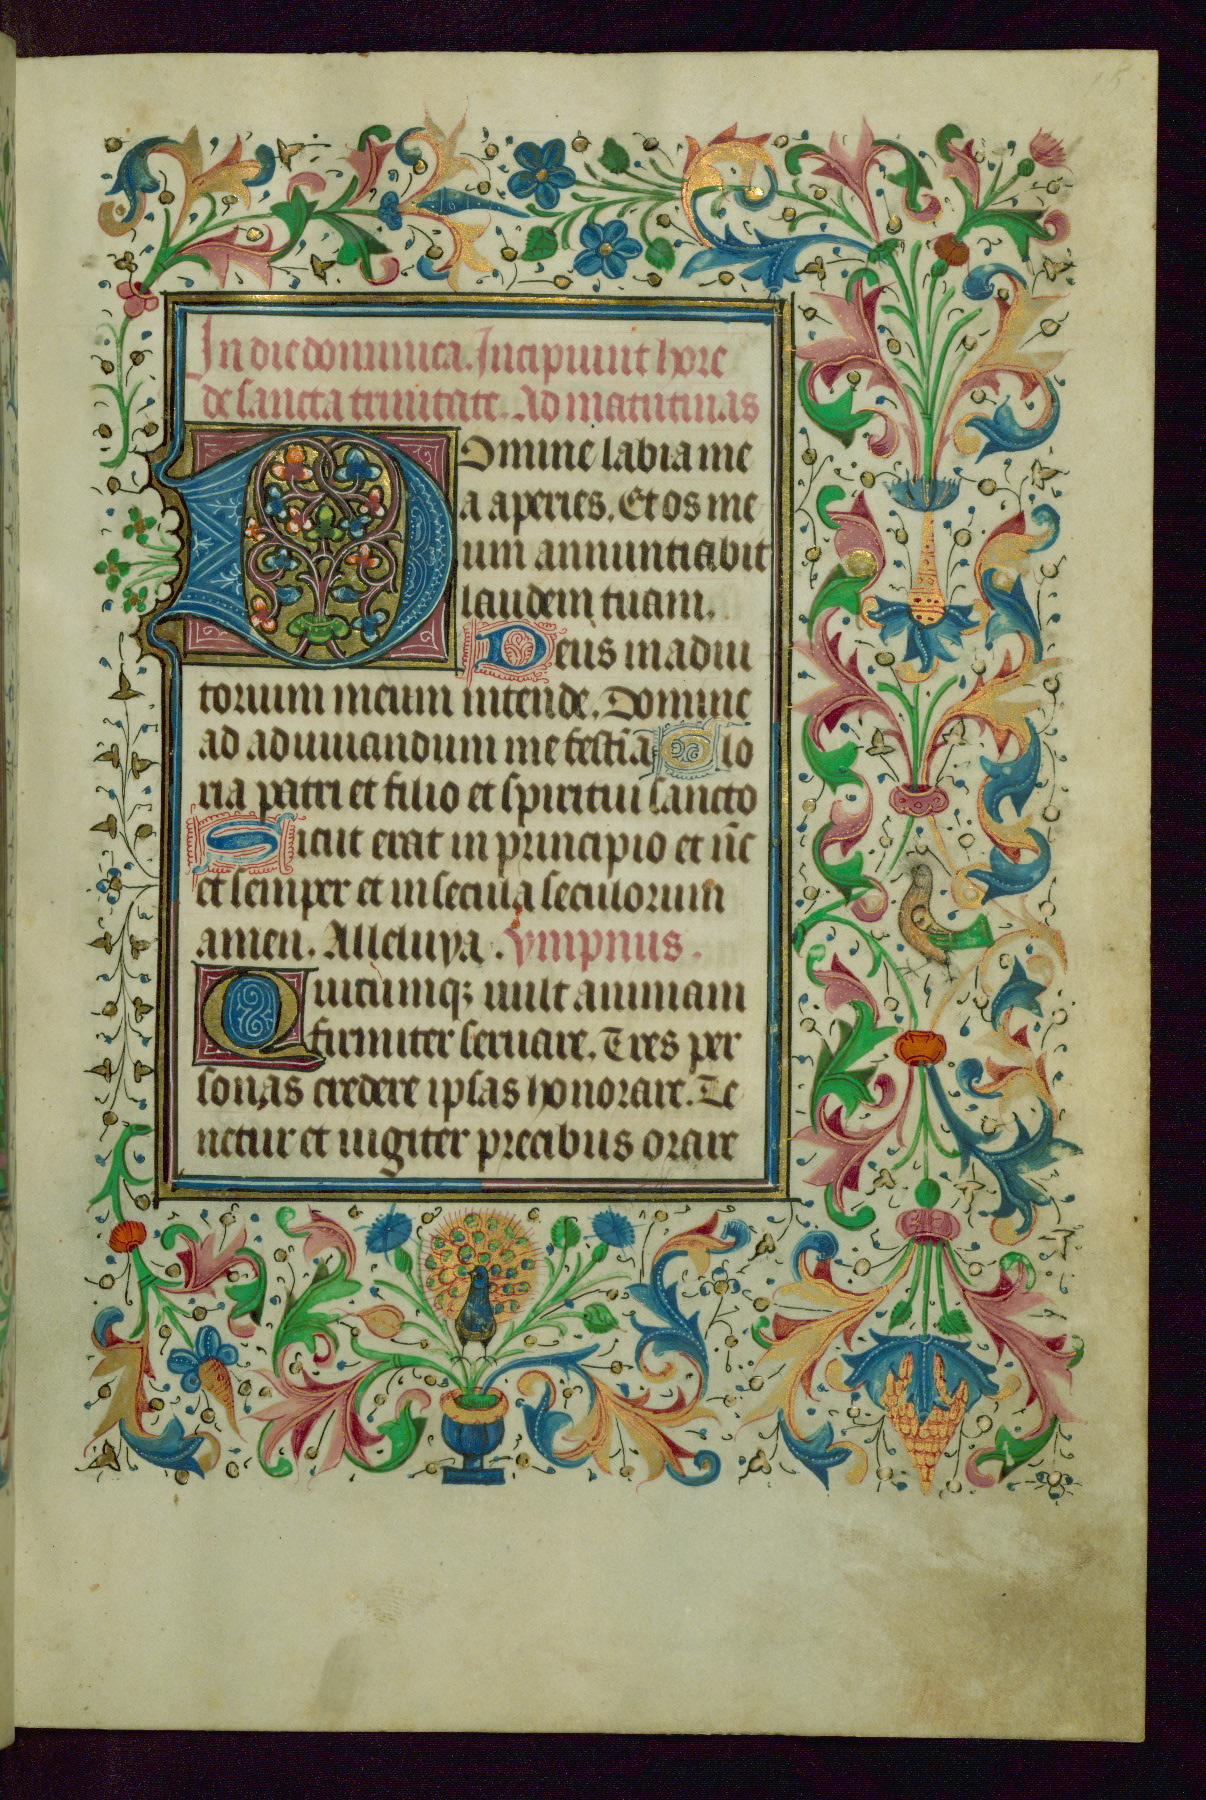 15
In die dominica. Incipiunt hore
de sancta trinitate. Ad matutinas
Domine labia me
a aperies. Et os me
um annuntiabit
laudem tuam.
Deus in adiu
torium meum intende. Domine
ad adiuuandum me festīa Glo
ria patri et filio et spiritui sancto
Sicut erat in principio et nūc
et semper et in secula seculorum
amen. Alleluya. ympnus.
Quicumqꝫ uult animam
firmiter seruare. Tres per
sonas credere ipsas honorare. Te
netur et iugiter precibus orare